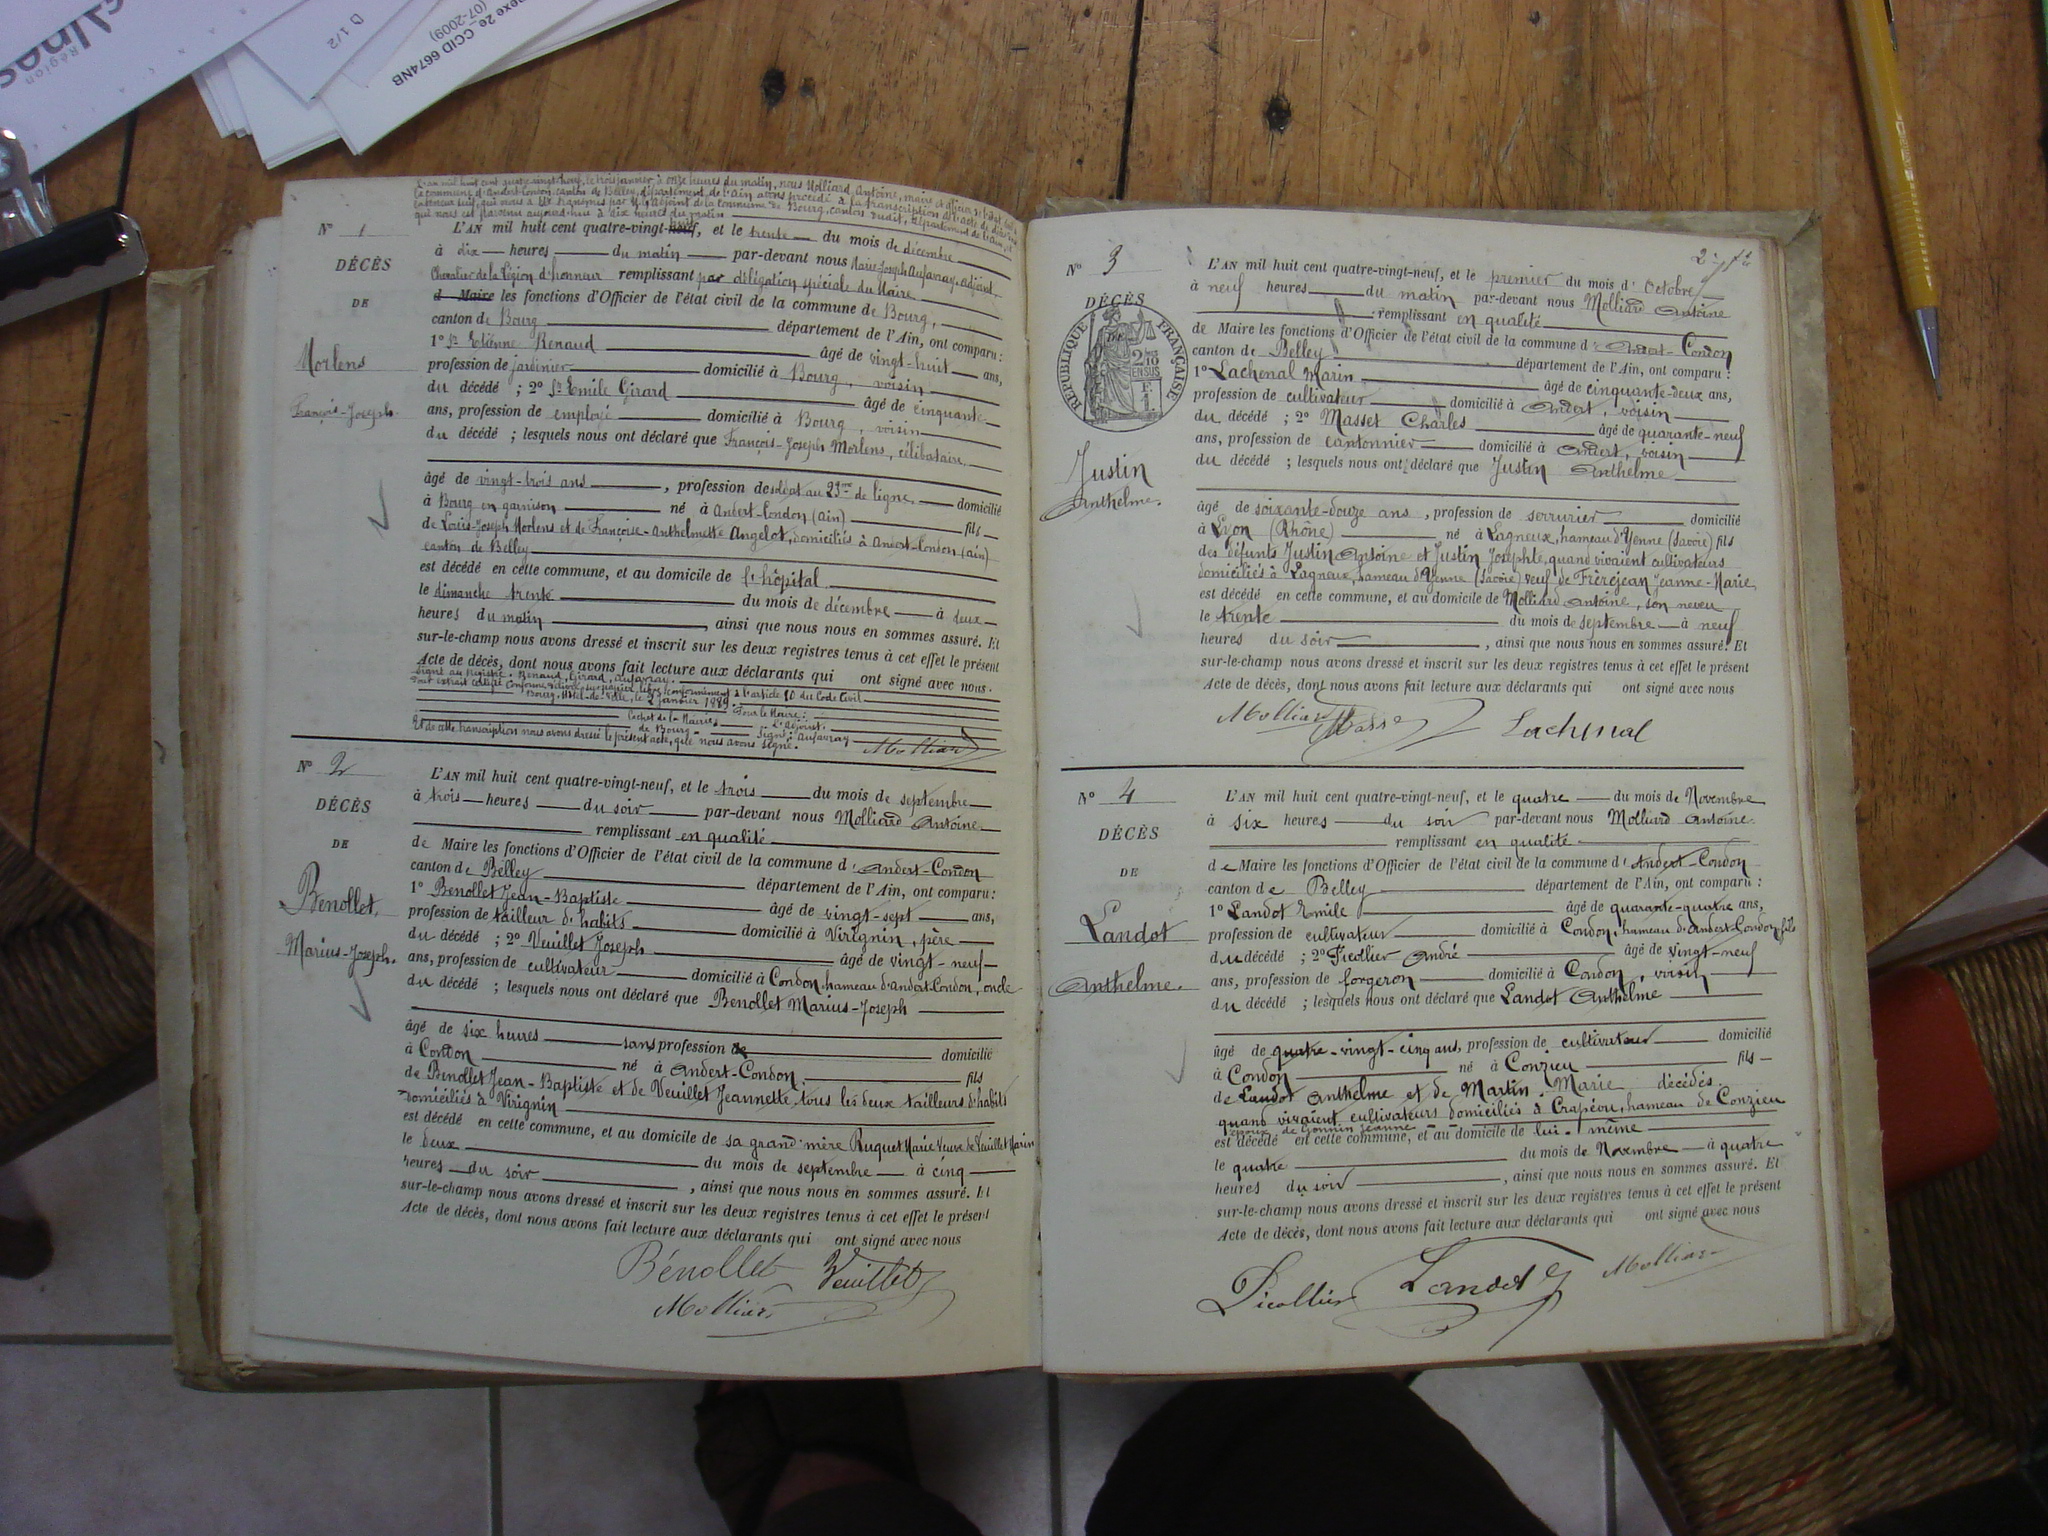 Région
D 1/2
nexe 2e CCID 6674NB
(07-2009)
L'an mil huit cent quatre-vingt-neuf, le trois janvier à onze heures du matin, nous Molliard Antoine, maire et officier de l'état civil de
la commune d'Andert-Condon, canton de Belley, département de l'Ain avons procédé à la transcription de l'acte de décès dont
la teneur suit, qui nous a été transmis par M. l'adjoint de la commune de Bourg, canton dudit, département de l'Ain, et
qui nous est parvenu aujourd'hui à dix heures du matin
N° 1
DÉCÈS
DE
Morlens
François-Joseph.
L'AN mil huit cent quatre-vingt-neuf, et le trente du mois de décembre
à dix heures du matin par-devant nous Marie-Joseph Aufavray, adjoint,
Chevalier de la Légion d'honneur remplissant par délégation spéciale du Maire
d Maire les fonctions d'Officier de l'état civil de la commune de Bourg,
canton de Bourg département de l'Ain, ont comparu :
1° Sr Etienne Renaud âgé de vingt-huit ans,
profession de jardinier domicilié à Bourg, voisin
du décédé ; 2° Sr Emile Girard âgé de cinquante-
ans, profession de employé domicilié à Bourg, voisin
du décédé ; lesquels nous ont déclaré que François-Joseph Morlens, célibataire
âgé de vingt-trois ans , profession de soldat au 23me de ligne domicilié
à Bourg en garnison né à Andert-Condon (Ain) fils
de Louis-Joseph Morlens et de Françoise-Anthelmette Angelot, domiciliés à Andert-Condon (ain)
canton de Belley
est décédé en cette commune, et au domicile de l'hôpital
le dimanche trente du mois de décembre à deux
heures du matin , ainsi que nous nous en sommes assuré. Et
sur-le-champ nous avons dressé et inscrit sur les deux registres tenus à cet effet le présent
Acte de décès, dont nous avons fait lecture aux déclarants qui ont signé avec nous.
Signé au registre. Renaud, Girard, Aufavray.
Pour extrait certifié conforme délivré sur papier libre conformément à l'article 80 du Code Civil
Bourg, Hôtel-de-Ville, le 2 janvier 1889.
Pour le Maire :
Cachet de la Mairie L'Adjoint.
de Bourg. Signé : Aufavray
Et de cette transcription nous avons dressé le présent acte, que nous avons signé.
Molliard
N° 2
DÉCÈS
DE
Benollet,
Marius-Joseph.
L'AN mil huit cent quatre-vingt-neuf, et le trois du mois de septembre
à trois heures du soir par-devant nous Molliard Antoine
remplissant en qualité
de Maire les fonctions d'Officier de l'état civil de la commune d'Andert-Condon
canton de Belley département de l'Ain, ont comparu :
1° Benollet Jean-Baptiste âgé de vingt-sept ans,
profession de tailleur d'habits domicilié à Virignin, père
du décédé ; 2° Veuillet Joseph âgé de vingt-neuf
ans, profession de cultivateur domicilié à Condon, hameau d'Andert-Condon, oncle
du décédé ; lesquels nous ont déclaré que Benollet Marius-Joseph
âgé de six heures sans profession de domicilié
à Condon né à Andert-Condon fils
de Benollet Jean-Baptiste et de Veuillet Jeannette tous les deux tailleurs d'habits
domiciliés à Virignin
est décédé en cette commune, et au domicile de sa grand'mère Ruquet Marie Veuve de Veuillet Marin
le deux du mois de septembre à cinq
heures du soir , ainsi que nous nous en sommes assuré. Et
sur-le-champ nous avons dressé et inscrit sur les deux registres tenus à cet effet le présent
Acte de décès, dont nous avons fait lecture aux déclarants qui ont signé avec nous
Bénollet Veuillet
Molliard
N° 3
DÉCÈS
DE
RÉPUBLIQUE FRANÇAISE
2/10 EN SUS
F. 1.
Justin
Anthelme.
L'AN mil huit cent quatre-vingt-neuf, et le premier du mois d'Octobre
à neuf heures du matin par-devant nous Molliard Antoine
remplissant en qualité
de Maire les fonctions d'Officier de l'état civil de la commune d'Andert-Condon
canton de Belley département de l'Ain, ont comparu :
1° Lachenal Marin âgé de cinquante-deux ans,
profession de cultivateur domicilié à Andert, voisin
du décédé ; 2° Masset Charles âgé de quarante-neuf
ans, profession de cantonnier domicilié à Andert, voisin
du décédé ; lesquels nous ont déclaré que Justin Anthelme
âgé de soixante-douze ans, profession de serrurier domicilié
à Lyon (Rhône) né à Lagneux, hameau d'Yenne (Savoie) fils
des défunts Justin Antoine et Justin Josephte, quand vivaient cultivateurs
domiciliés à Lagneux, hameau d'Yenne (Savoie) veuf de Frèrejean Jeanne-Marie
est décédé en cette commune, et au domicile de Molliard Antoine, son neveu
le trente du mois de septembre à neuf
heures du soir , ainsi que nous nous en sommes assuré. Et
sur-le-champ nous avons dressé et inscrit sur les deux registres tenus à cet effet le présent
Acte de décès, dont nous avons fait lecture aux déclarants qui ont signé avec nous
Molliard Masset Lachenal
N° 4
DÉCÈS
DE
Landot
Anthelme.
L'AN mil huit cent quatre-vingt-neuf, et le quatre du mois de Novembre
à six heures du soir par-devant nous Molliard Antoine
remplissant en qualité
de Maire les fonctions d'Officier de l'état civil de la commune d'Andert-Condon
canton de Belley département de l'Ain, ont comparu :
1° Landot Emile âgé de quarante-quatre ans,
profession de cultivateur domicilié à Condon, hameau d'Andert-Condon, fils
du décédé ; 2° Picollier André âgé de vingt-neuf
ans, profession de forgeron domicilié à Condon, voisin
du décédé ; lesquels nous ont déclaré que Landot Anthelme
âgé de quatre-vingt-cinq ans, profession de cultivateur domicilié
à Condon né à Conzieu fils
de Landot Anthelme et de Martin Marie décédés.
quand vivaient cultivateurs domiciliés à Crapéou, hameau de Conzieu
époux de Jeanne
est décédé en cette commune, et au domicile de lui-même
le quatre du mois de Novembre à quatre
heures du soir , ainsi que nous nous en sommes assuré. Et
sur-le-champ nous avons dressé et inscrit sur les deux registres tenus à cet effet le présent
Acte de décès, dont nous avons fait lecture aux déclarants qui ont signé avec nous
Picollier Landot Molliard